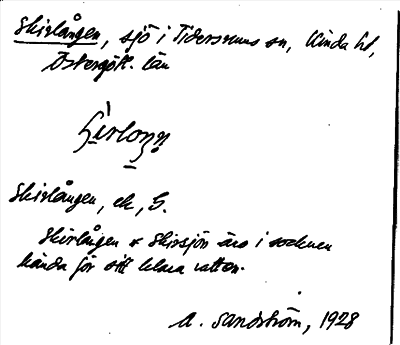 Skirlången, sjö i Tidersrums sn, Kinda hd,
Östergötl. län
Skirlången, ek, G.
Skirlången o Skirsjön äro i socknen
kända för sitt klara vatten.
A. Sandström, 1928